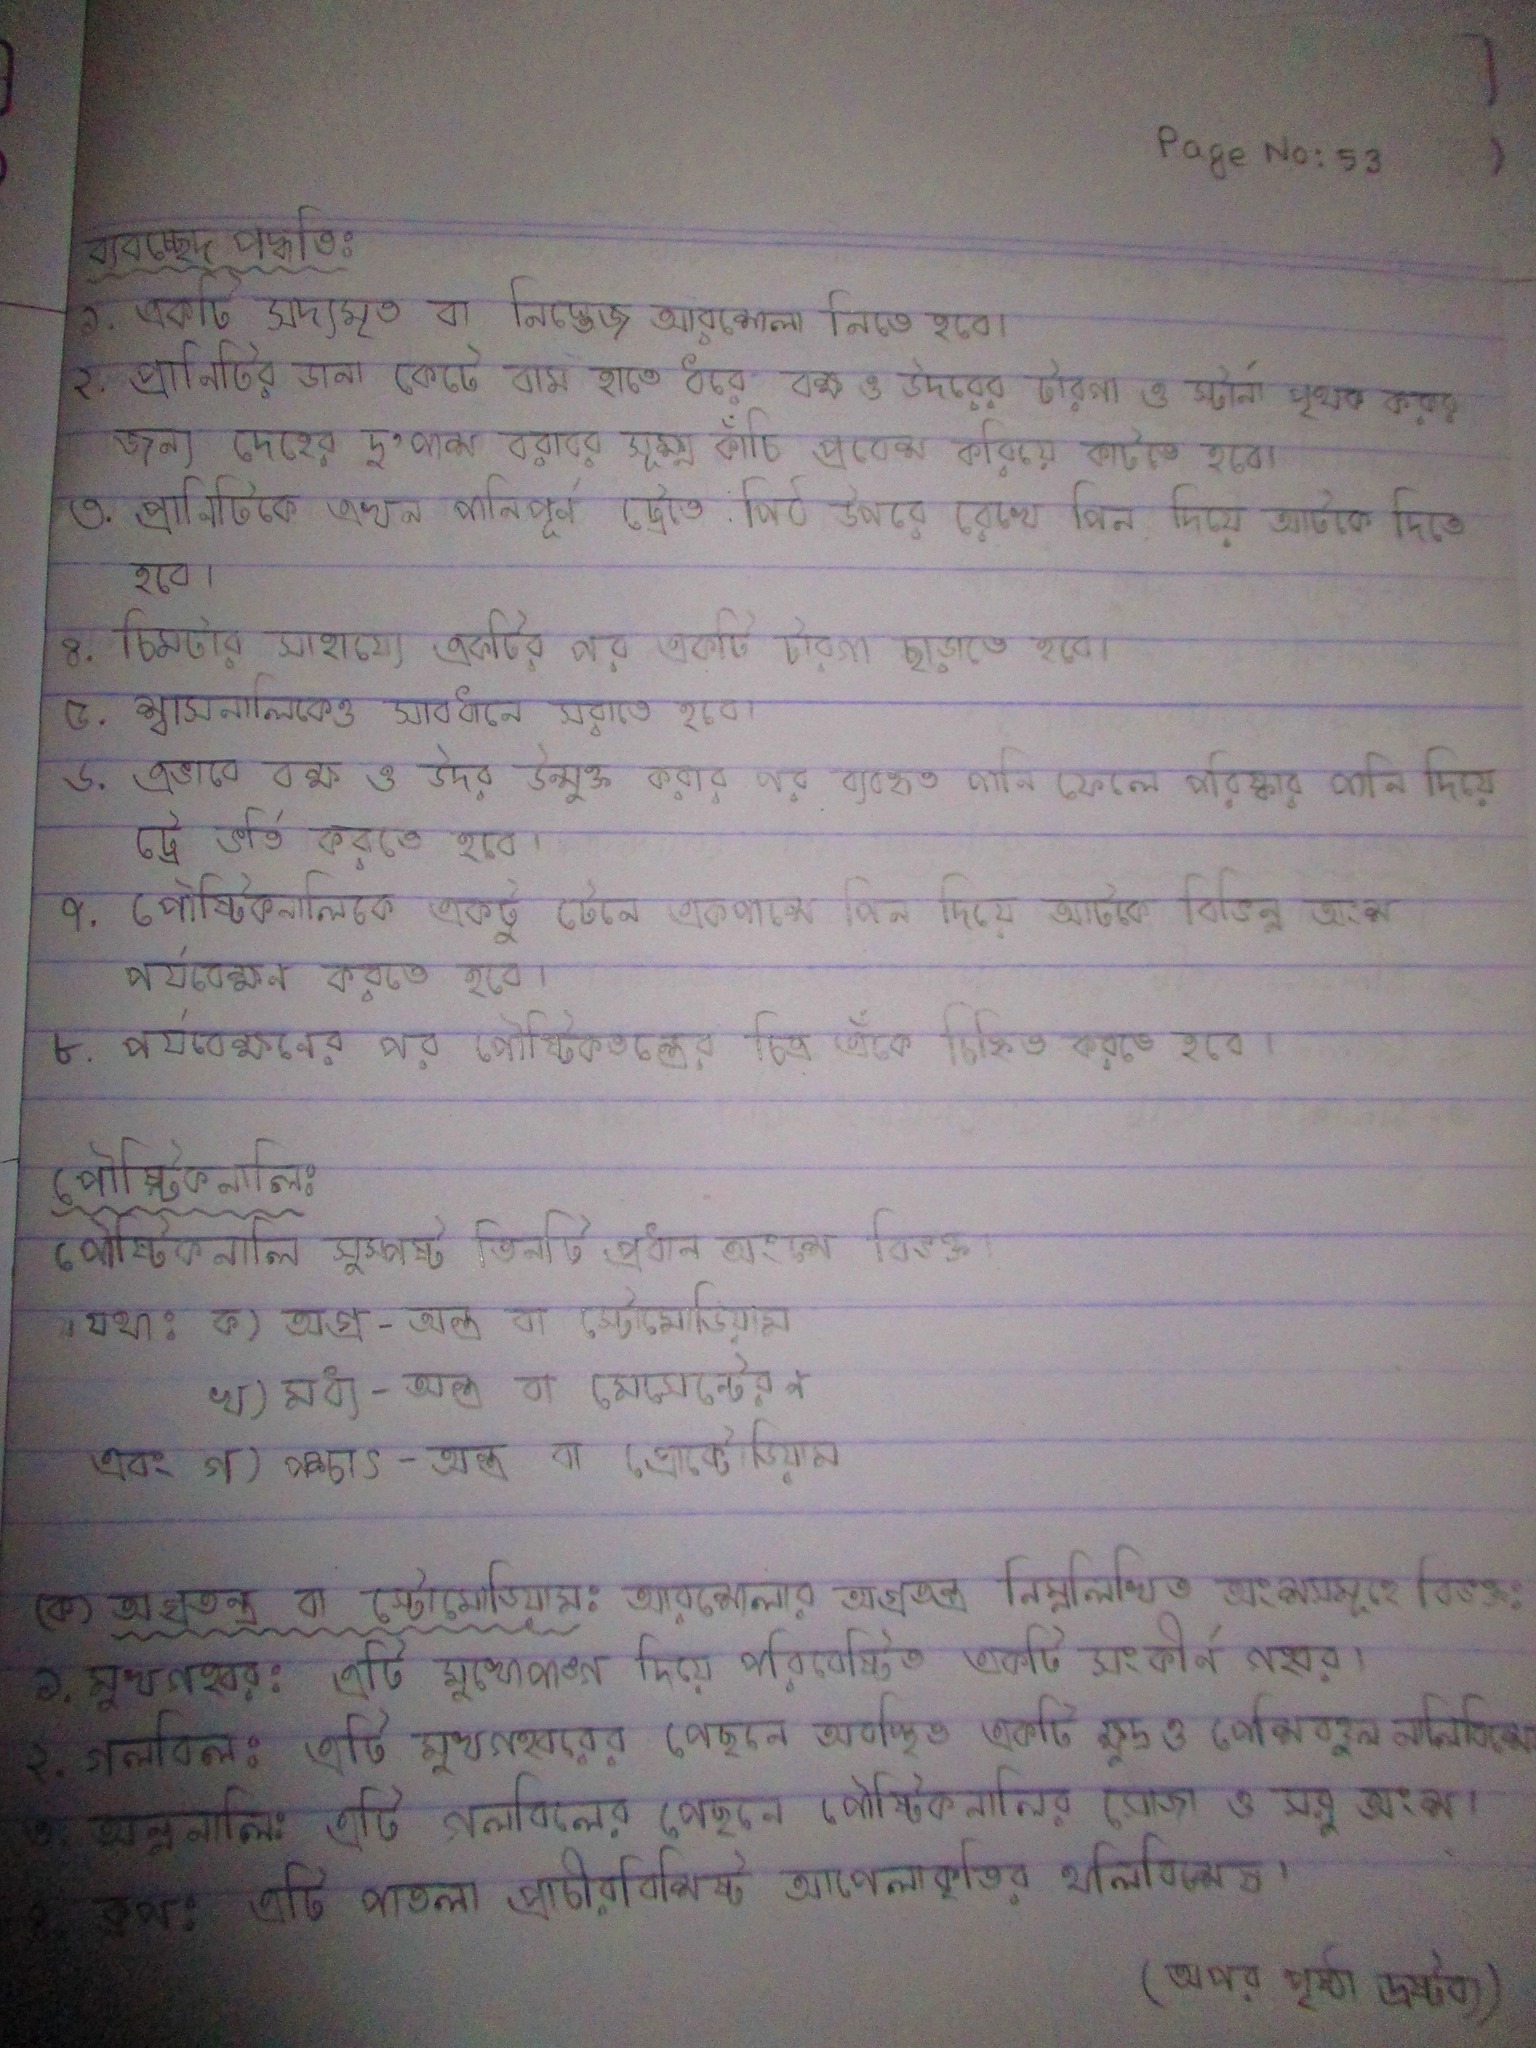 Page No: 53
ব্যবচ্ছেদ পদ্ধতিঃ
১. একটি সদ্যমৃত বা নিস্তেজ আরশোলা নিতে হবে।
২. প্রানিটির ডানা কেটে বাম হাতে ধরে বক্ষ ও উদরের টারগা ও স্টার্না পৃথক করার
জন্য দেহের দু'পাশ বরাবর সূক্ষ্ম কাঁচি প্রবেশ করিয়ে কাটতে হবে।
৩. প্রানিটিকে এখন পানিপূর্ন ট্রেতে পিঠ উপরে রেখে পিন দিয়ে আটকে দিতে
হবে।
৪. চিমটার সাহায্যে একটির পর একটি টারগা ছাড়াতে হবে।
৫. শ্বাসনালিকেও সাবধানে সরাতে হবে।
৬. এভাবে বক্ষ ও উদর উন্মুক্ত করার পর ব্যবহৃত পানি ফেলে পরিষ্কার পানি দিয়ে
ট্রে ভর্তি করতে হবে।
৭. পৌষ্টিকনালিকে একটু টেনে একপাশে পিন দিয়ে আটকে বিভিন্ন অংশ
পর্যবেক্ষন করতে হবে।
৮. পর্যবেক্ষনের পর পৌষ্টিকতন্ত্রের চিত্র এঁকে চিহ্নিত করতে হবে।
পৌষ্টিকনালিঃ
পৌষ্টিকনালি সুস্পষ্ট তিনটি প্রধান অংশে বিভক্ত।
যথাঃ ক) অগ্র-অন্ত্র বা স্টোমোডিয়াম
খ) মধ্য-অন্ত্র বা মেসেন্টেরন
এবং গ) পশ্চাৎ-অন্ত্র বা প্রোক্টোডিয়াম
(ক) অগ্রতন্ত্র বা স্টোমোডিয়ামঃ আরশোলার অগ্রতন্ত্র নিম্নলিখিত অংশসমূহে বিভক্তঃ
১. মুখগহ্বরঃ এটি মুখোপাঙ্গ দিয়ে পরিবেষ্টিত একটি সংকীর্ন গহ্বর।
২. গলবিলঃ এটি মুখগহ্বরের পেছনে অবস্থিত একটি ক্ষুদ্র ও পেশিবহুল নালিবিশেষ
৩. অন্ননালিঃ এটি গলবিলের পেছনে পৌষ্টিকনালির সোজা ও সরু অংশ।
৪. ক্রপঃ এটি পাতলা প্রাচীরবিশিষ্ট আপেলাকৃতির থলিবিশেষ।
(অপর পৃষ্ঠা দ্রষ্টব্য)